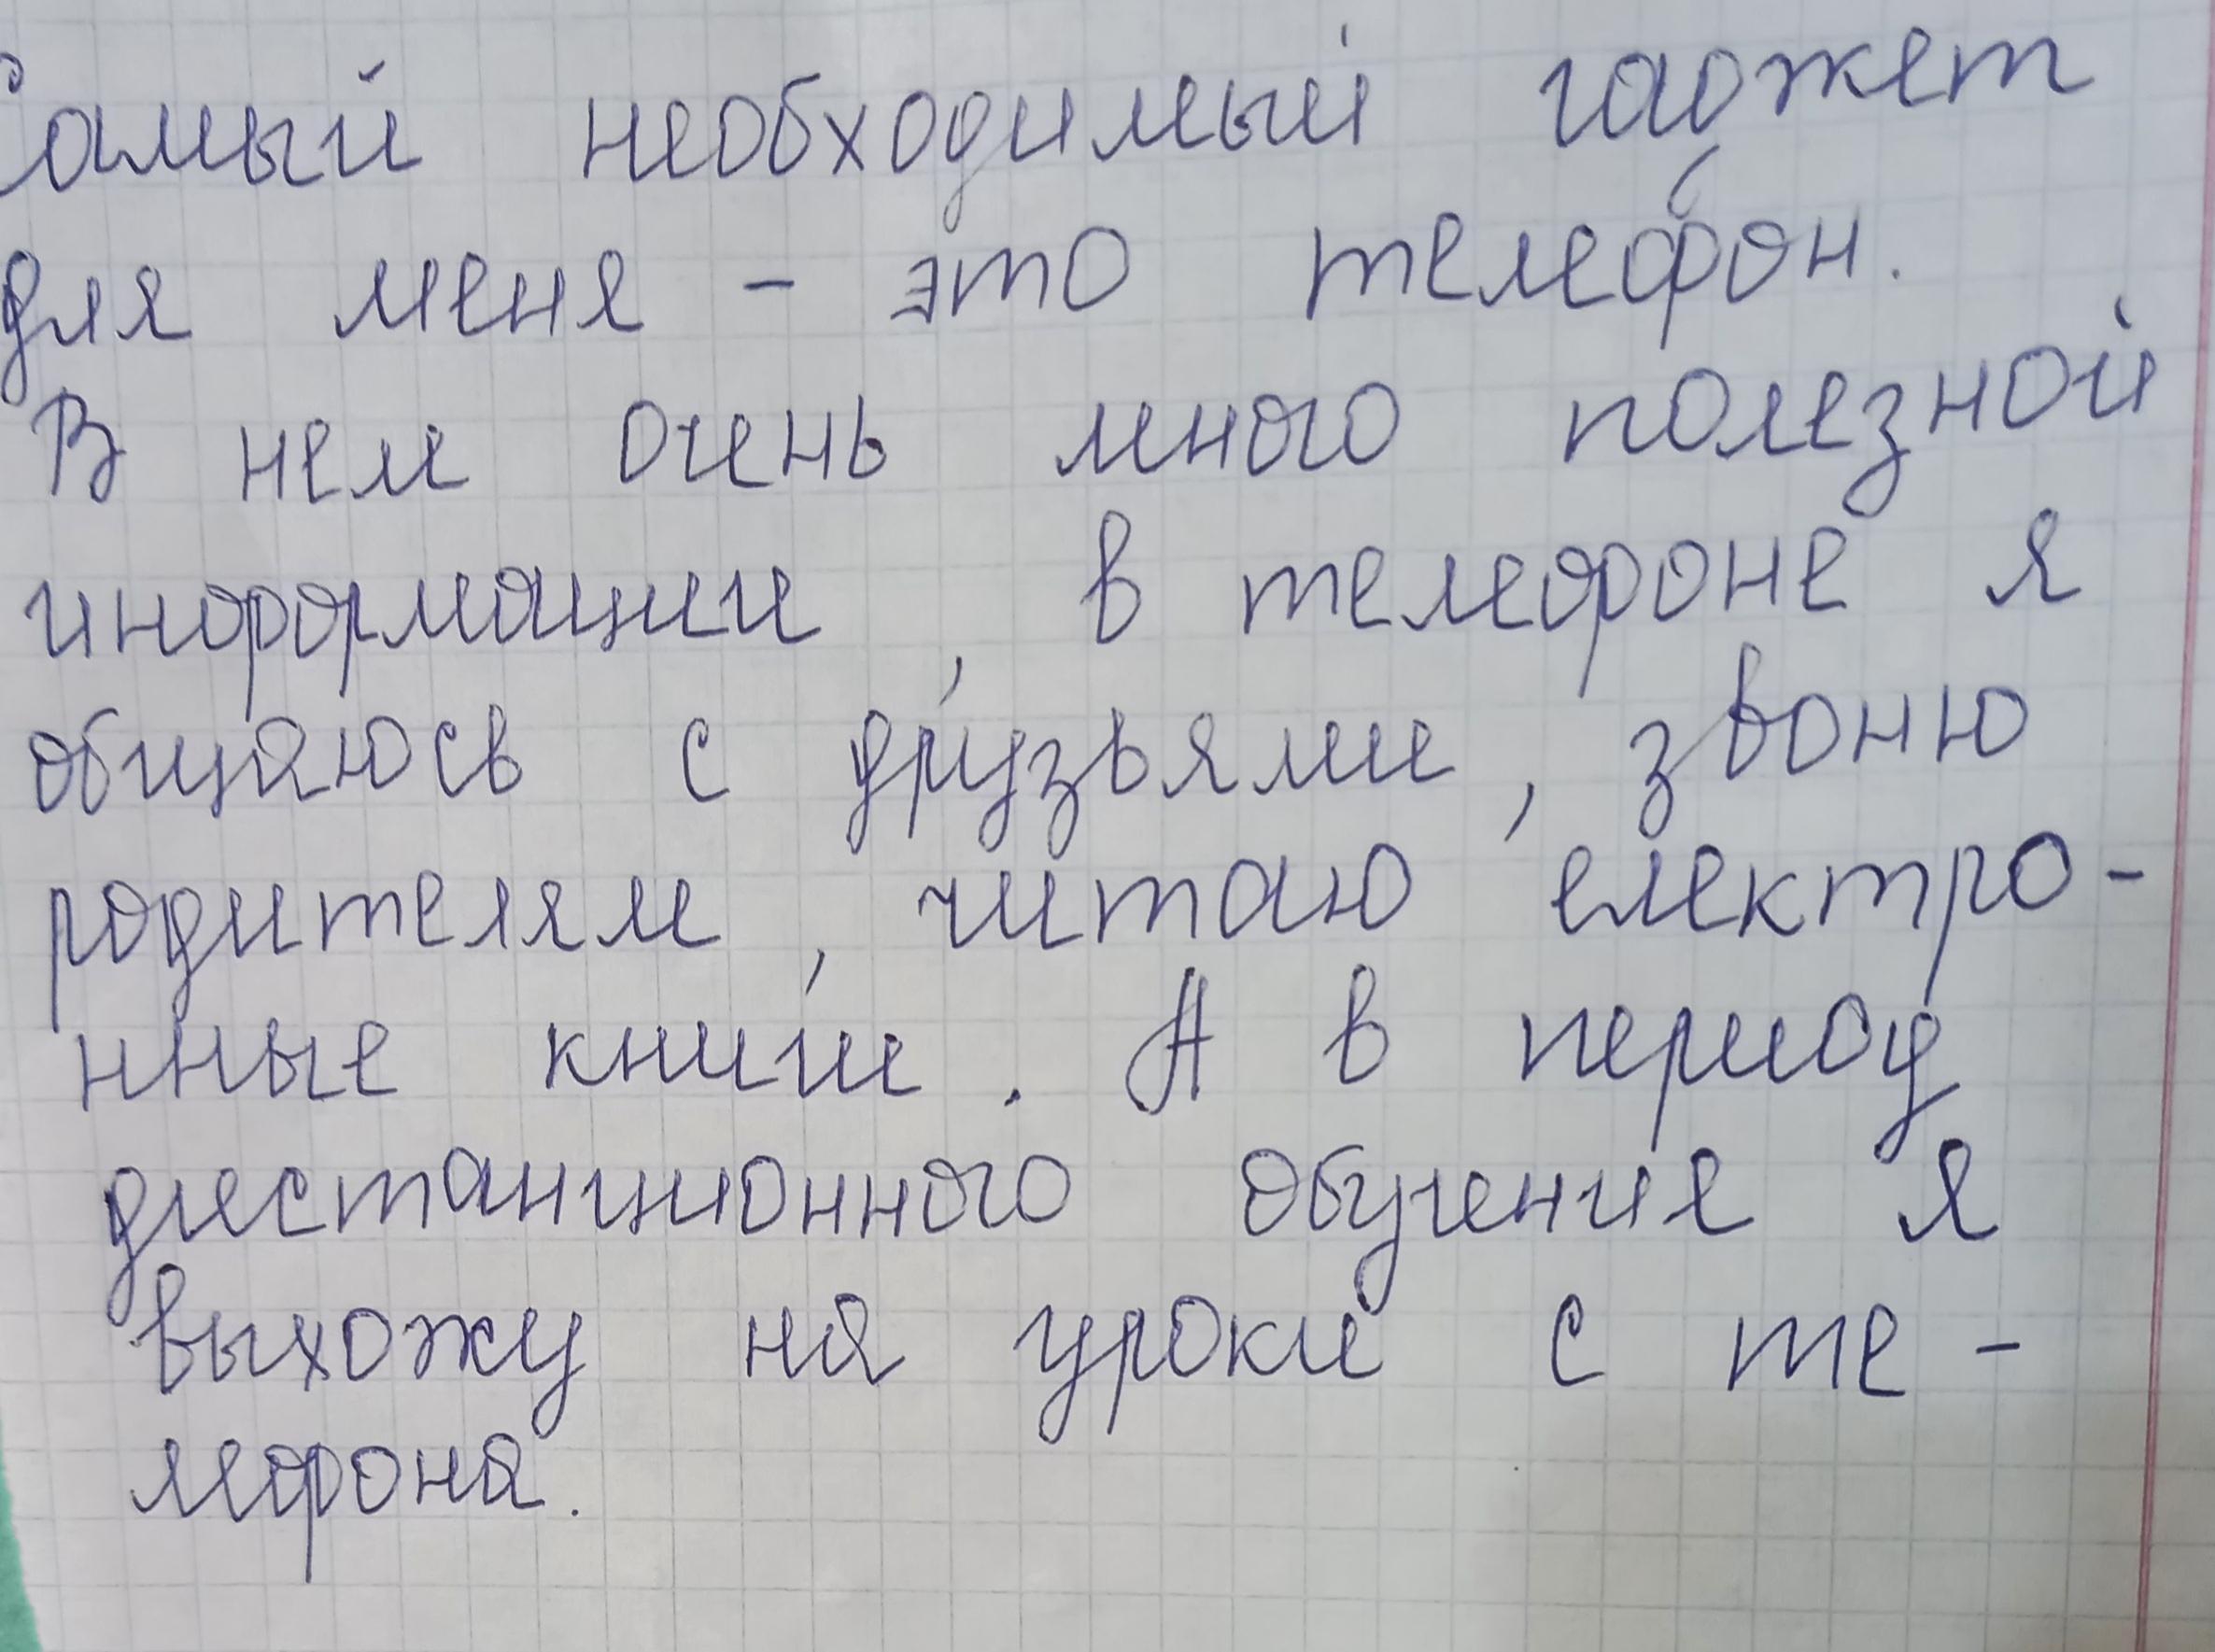 Самый необходимый гаджет
для меня - это телефон.
В нем очень много полезной
информации, в телефоне я
общаюсь с друзьями, звоню
родителям, читаю електро-
нные книги. А в период
дистанционного обучения я
выхожу на уроки с те-
лефона.